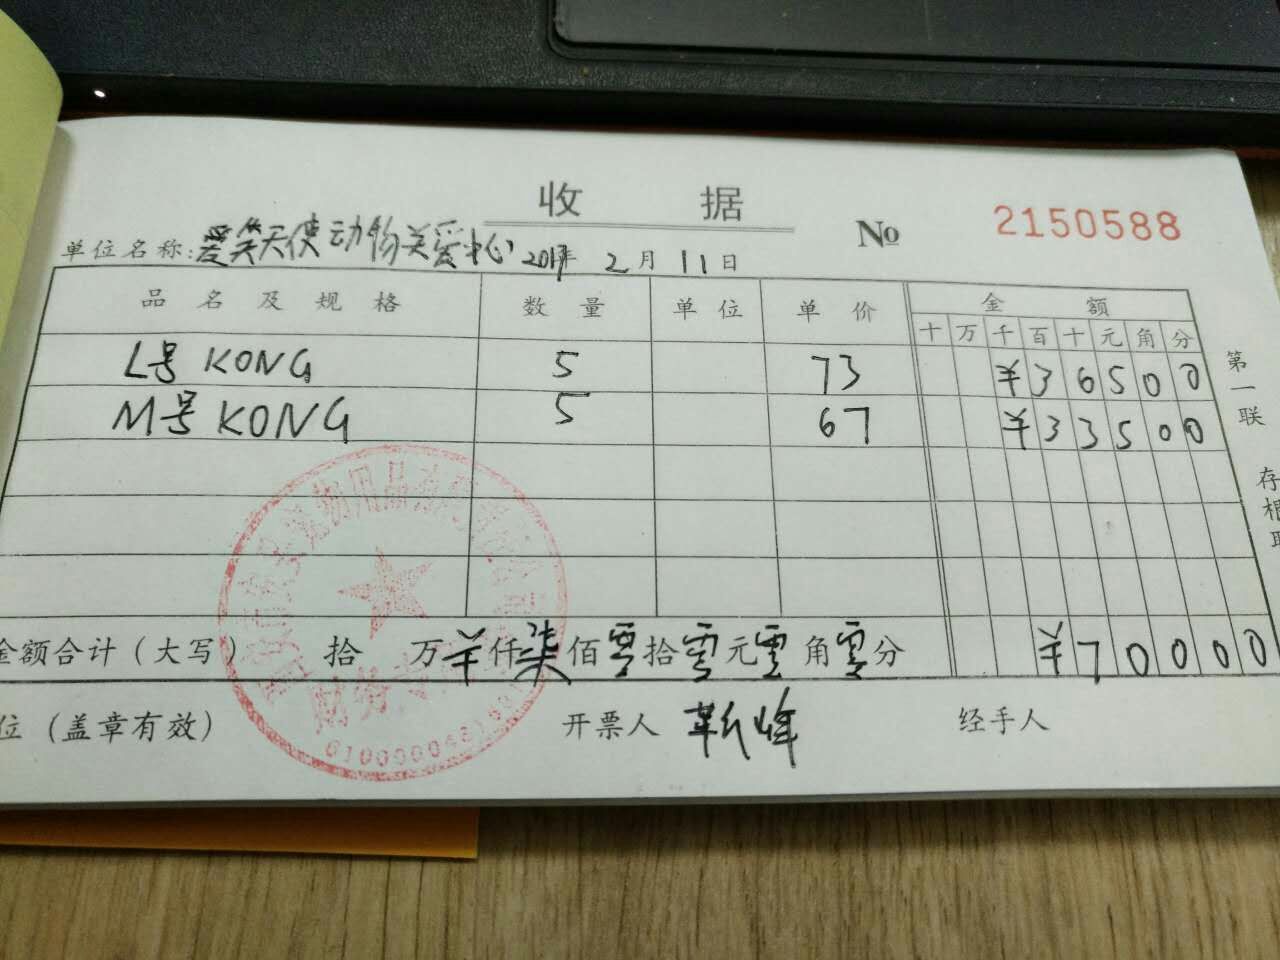 收 据
No 2150588
单位名称:爱笑天使动物关爱中心 2017年 2月 11日
品名及规格 数量 单位 单价 金额
十 万 千 百 十 元 角 分
L号 KONG 5 73 ¥ 3 6 5 0 0
M号 KONG 5 67 ¥ 3 3 5 0 0
金额合计(大写) 拾 万 ¥ 仟 柒 佰 零 拾 零 元 零 角 零 分 ¥ 7 0 0 0 0
位(盖章有效) 开票人 经手人
第一联 存根联